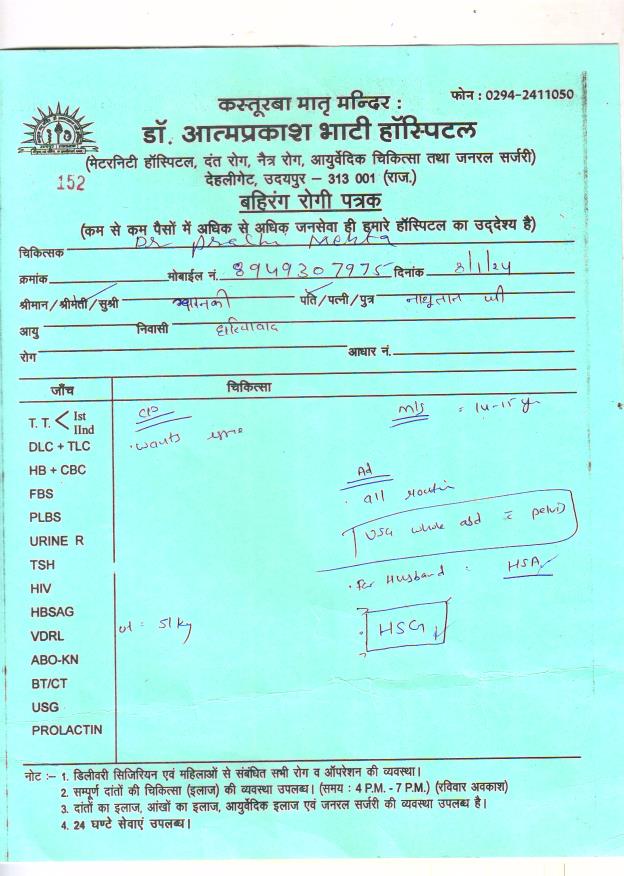 कस्तूरबा मातृ मन्दिर :
फोन : 0294-2411050
डॉ. आत्मप्रकाश भाटी हॉस्पिटल
(मेटरनिटी हॉस्पिटल, दंत रोग, नैत्र रोग, आयुर्वेदिक चिकित्सा तथा जनरल सर्जरी)
152
देहलीगेट, उदयपुर – 313 001 (राज.)
बहिरंग रोगी पत्रक
(कम से कम पैसों में अधिक से अधिक जनसेवा ही हमारे हॉस्पिटल का उद्देश्य है)
चिकित्सक Dr Prachi Mehta
क्रमांक मोबाईल नं. 8949307975 दिनांक 8/1/24
श्रीमान/श्रीमती/सुश्री पति/पत्नी/पुत्र
आयु निवासी
रोग आधार नं.
जाँच चिकित्सा
T. T. < Ist IInd
C/O M/S = 14-15 yr
DLC + TLC
. wants issue
HB + CBC
Ad
FBS
. all routin
PLBS
URINE R
USG whole abd c pelvis
TSH
. For Husband : HSA
HIV
HBSAG
VDRL
wt = 51 kg
. HSG
ABO-KN
BT/CT
USG
PROLACTIN
नोट :– 1. डिलीवरी सिजिरियन एवं महिलाओं से संबंधित सभी रोग व ऑपरेशन की व्यवस्था।
2. सम्पूर्ण दांतों की चिकित्सा (इलाज) की व्यवस्था उपलब्ध। (समय : 4 P.M. - 7 P.M.) (रविवार अवकाश)
3. दांतों का इलाज, आंखों का इलाज, आयुर्वेदिक इलाज एवं जनरल सर्जरी की व्यवस्था उपलब्ध है।
4. 24 घण्टे सेवाएं उपलब्ध।